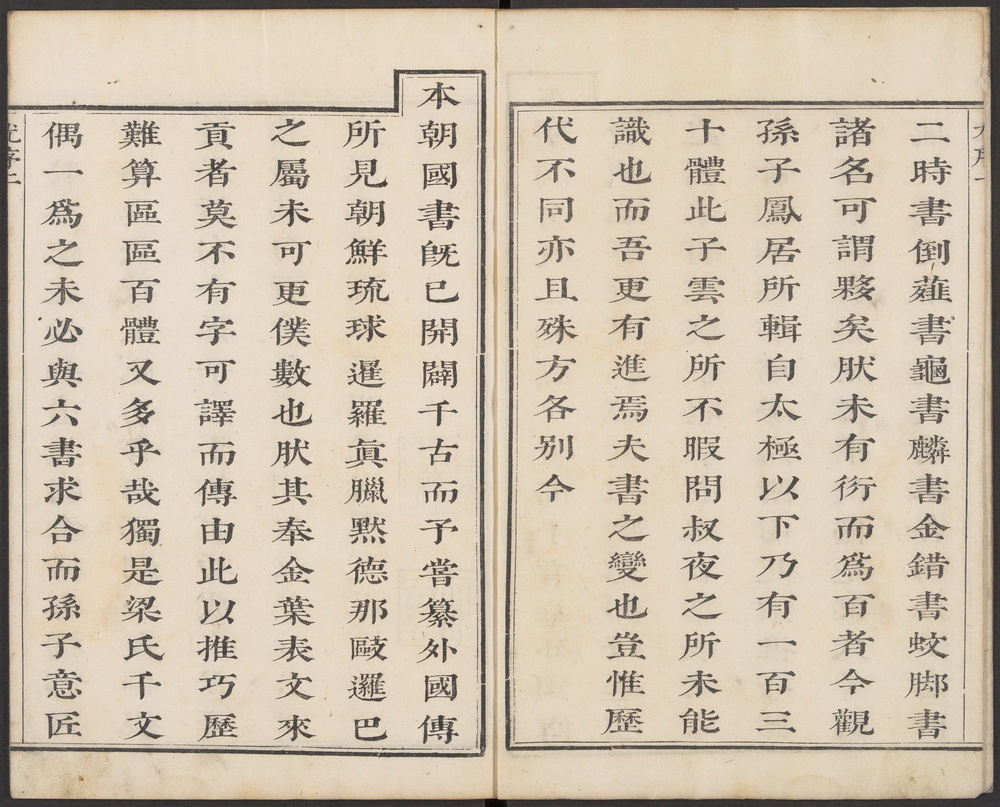 二時書倒薤書龜書麟書金錯書蛟脚書
諸名可謂夥矣肰未有衍而爲百者今觀
孫子鳳居所輯自太極以下乃有一百三
十體此子雲之所不暇問叔夜之所未能
識也而吾更有進焉夫書之變也豈惟歷
代不同亦且殊方各别今
本朝國書旣已開闢千古而予嘗纂外國傳
所見朝鮮琉球暹羅眞臘默德那歐邏巴
之屬未可更僕數也肰其奉金葉表文來
貢者莫不有字可譯而傳由此以推巧歷
難算區區百體又多乎哉獨是梁氏千文
偶一爲之未必與六書求合而孫子意匠